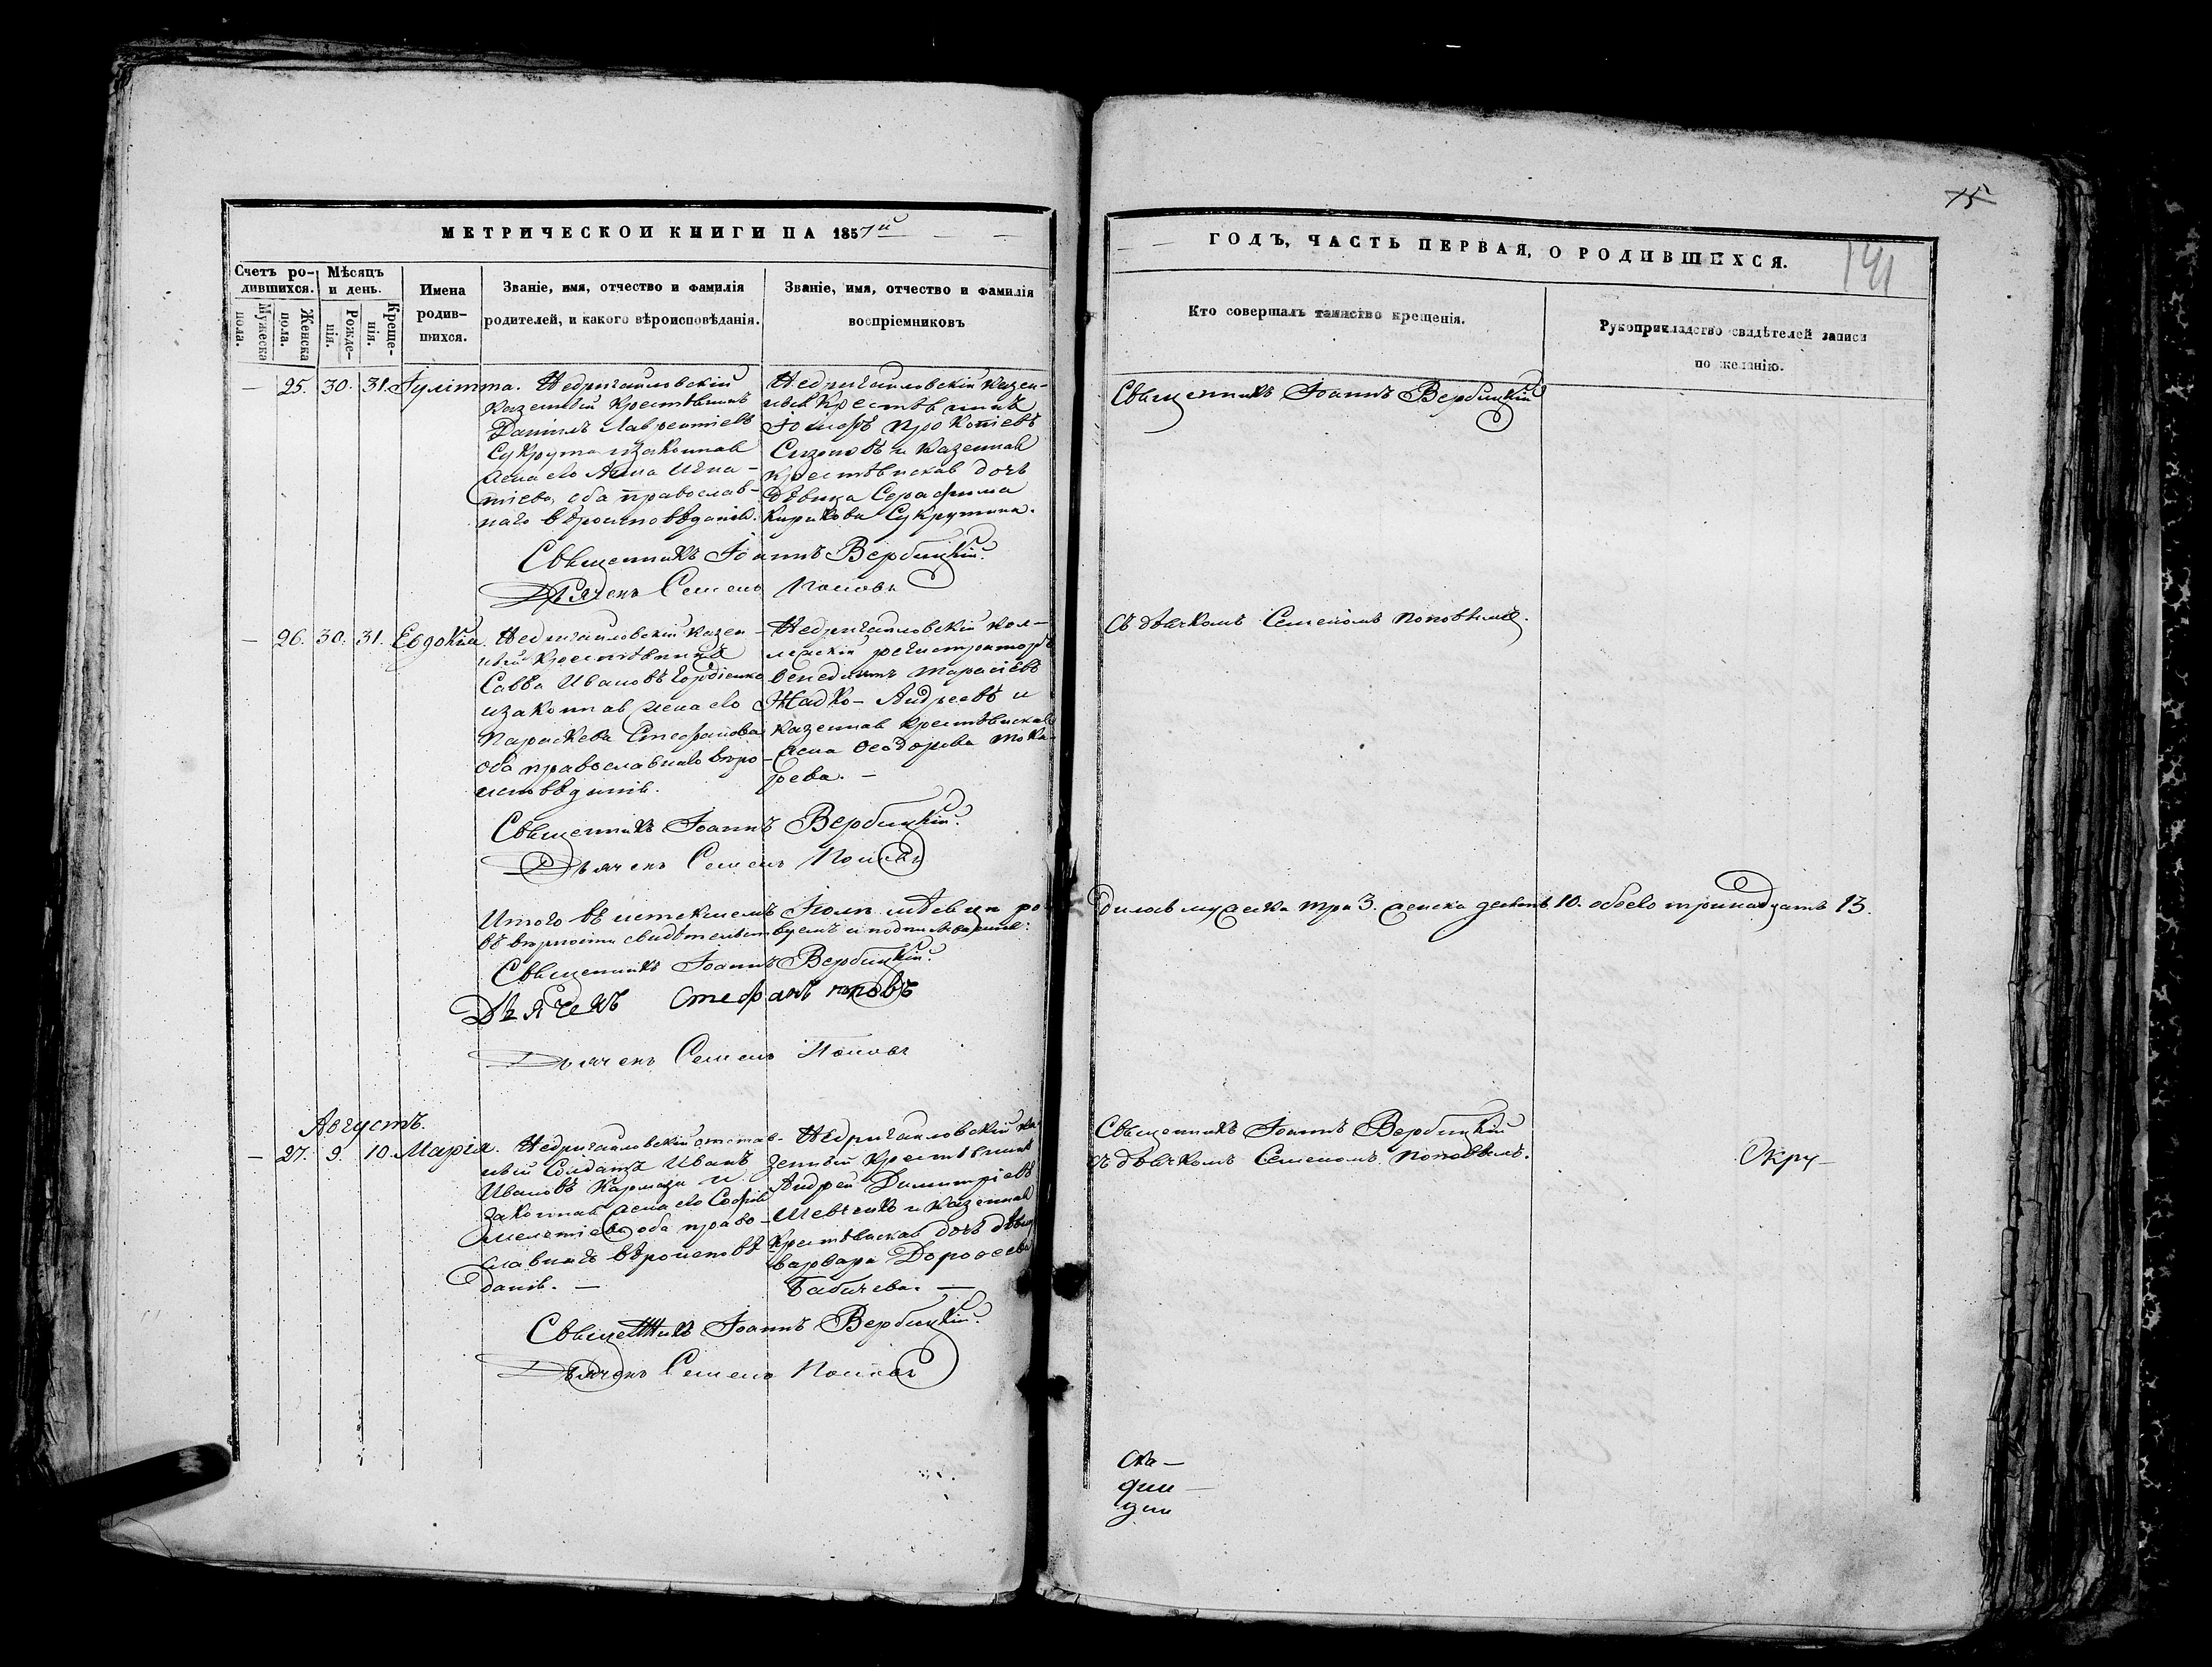 МЕТРИЧЕСКОЙ КНИГИ НА 1857й
Счетъ родившихся.
Мужеска пола.
Женска пола.
Мѣсяцъ и день.
Рожденія.
Крещенія.
Имена родившихся.
Званіе, имя, отчество и фамилія
родителей, и какого вѣроисповѣданія.
Званіе, имя, отчество и фамилія
воспріемниковъ
— 25. 30. 31. Іулітта.
Недригайловскій
казенный крестьянинъ
Даніилъ Лаврентіевъ
Сукрута и законная
жена его Анна Игна-
тіева, оба православ-
наго вѣроисповѣданія.
Недригайловскій казен-
ный крестьянинъ
Іосифъ Прокопіевъ
Сизоновъ и казенная
крестьянская дочь
дѣвица Серафима
Кирикова Сукрутина.
Священникъ Іоаннъ Вербицкій.
Дьячекъ Семенъ Поповъ
— 26. 30. 31. Евдокія.
Недригайловскій казен-
ный крестьянинъ
Савва Ивановъ Гордіенко
и законная жена его
Параскева Стефанова
оба православнаго вѣро-
исповѣданія.
Недригайловскій кол-
лежскій регистраторъ
Венедиктъ Тарасіевъ
Жадко-Андреевъ и
казенная крестьянская
жена Ѳеодорова Тока-
рева. —
Священникъ Іоаннъ Вербицкій.
Дьячекъ Семенъ Поповъ
Итого въ истекшемъ Іюлѣ мѣсяцѣ ро-
въ вѣрности свидѣтельствуемъ и подписываемъ:
Священникъ Іоаннъ Вербицкій.
Дьячекъ Стефанъ Поповъ
Дьячекъ Семенъ Поповъ
Августъ.
— 27. 9. 10. Марія.
Недригайловскій отстав-
ный Солдатъ Иванъ
Ивановъ Кармази и
законная жена его Софія
Мелетіева оба право-
славнаго вѣроисповѣ-
данія. —
Недригайловскій ка-
зенный крестьянинъ
Андрей Димитріевъ
Шевченко и казенная
крестьянская дочь дѣвица
Варвара Дороѳеева
Бабичева. —
Священникъ Іоаннъ Вербицкій.
Дьячекъ Семенъ Поповъ
75
ГОДЪ, ЧАСТЬ ПЕРВАЯ, О РОДИВШИХСЯ.
141
Кто совершалъ таинство крещенія.
Рукоприкладство свидѣтелей записи
по желанію.
Священникъ Іоаннъ Вербицкій
съ дьячкомъ Семеномъ Поповымъ.
дилось мужеска три 3. женска десять 10. обоего тринадцать 13.
Священникъ Іоаннъ Вербицкій
съ дьячкомъ Семеномъ Поповымъ.
Окру—